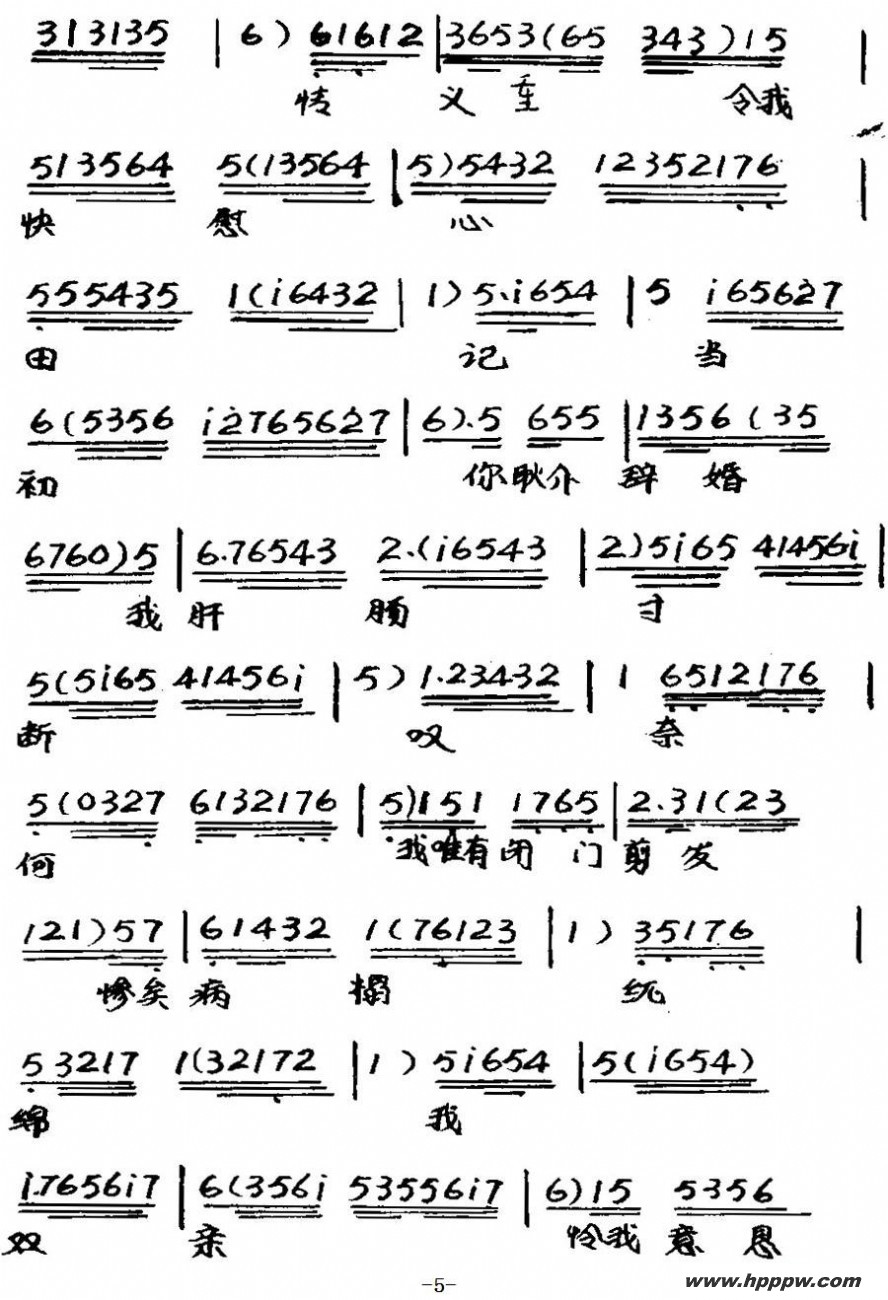 313135 | 6) 61612 | 3653(65 343)15 |
情 义 重 令我
513564 5(13564 | 5)5432 12352176 |
快 慰 心
555435 1(i6432 | 1) 5.i654 | 5 i65627
田 记 当
6(5356 i2765627 | 6).5 655 | 1356(35
初 你耿介 辞 婚
6760)5 | 6.76543 2.(i6543 | 2)5i65 41456i |
我 肝 肠 寸
5(5i65 41456i | 5) 1.23432 | 1 6512176 |
断 叹 奈
5(0327 6132176 | 5)151 1765 | 2.31(23
何 我唯有闭 门 剪 发
121)57 | 61432 1(76123 | 1) 35176 |
惨矣 病 榻 统
53217 1(32172 | 1) 5i654 | 5(i654)
绵 我
i.7656i7 | 6(356i 53556i7 | 6)15 5356
双 亲 怜我 意 恩
-5-
www.hpppw.com